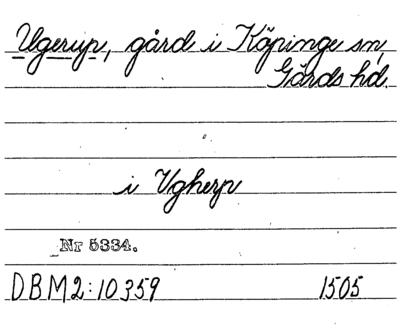 Ugerup, gård i Köpinge sn,
Gärds hd.
i Vgherp
Nr 5334.
DBM2:10359 1505